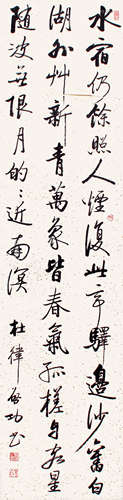 水宿仍餘照人煙復此亭驛邊沙舊白
湖外草新青萬象皆春氣孤槎自客星
隨波無限月的〻近南溟 杜律 啟功書